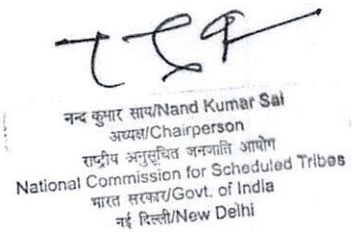 नन्द कुमार साय/Nand Kumar Sai
अध्यक्ष/Chairperson
राष्ट्रीय अनुसूचित जनजाति आयोग
National Commission for Scheduled Tribes
भारत सरकार/Govt. of India
नई दिल्ली/New Delhi